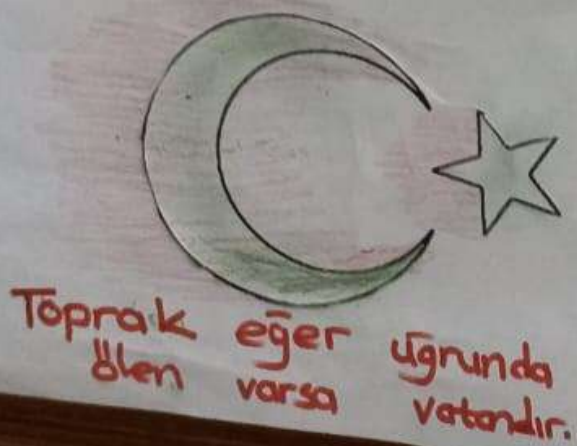 Toprak eğer uğrunda
ölen varsa vatandır.